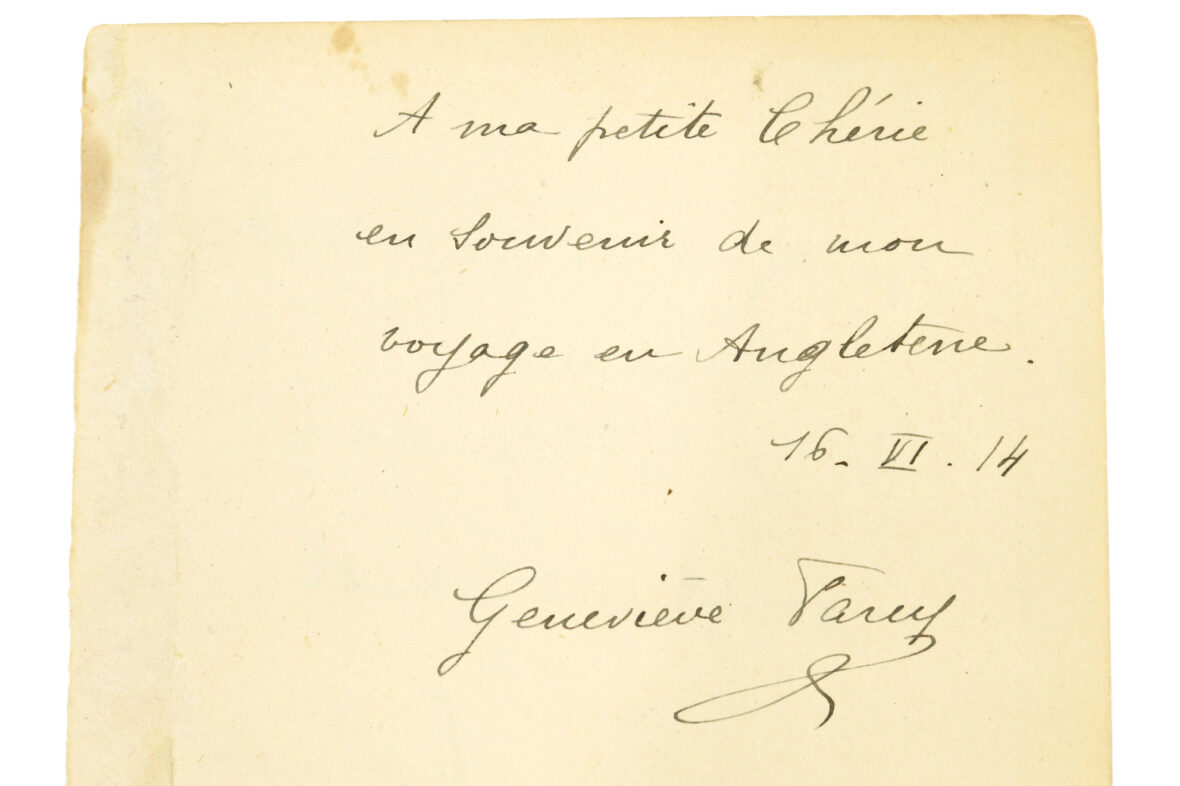 A ma petite Chérie
en Souvenir de mon
voyage en Angleterre.
16. VI. 14
Geneviève